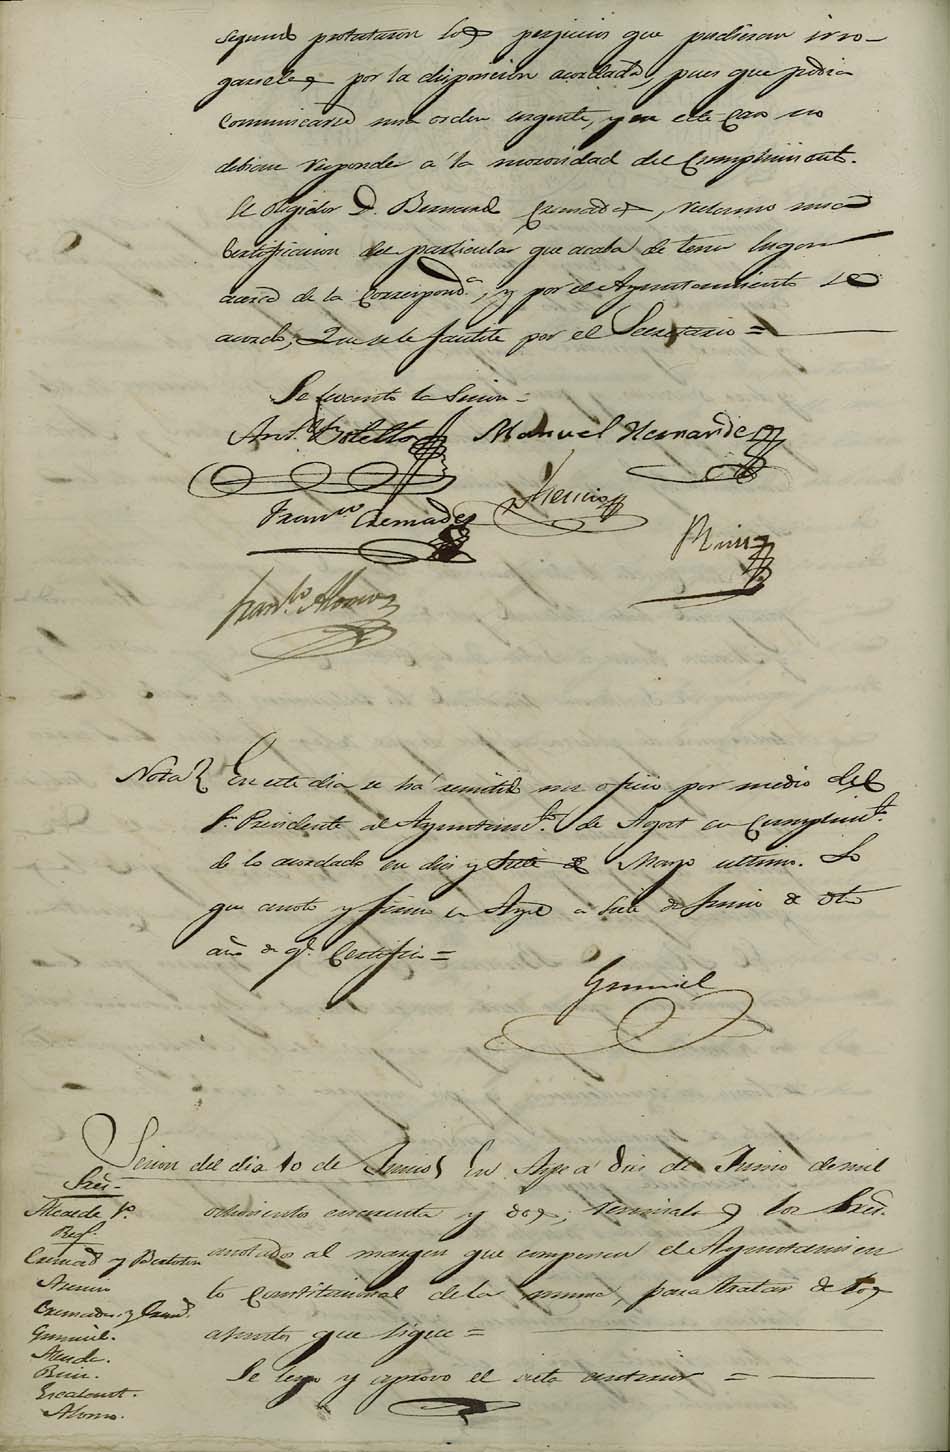 segundo protestaron los perjuicios que pudieran irro-
garseles por la disposicion acordada, pues que podia
comunicarse una orden urgente, y en este caso no
debian responder á la morosidad del Cumplimient.
El Regidor D. Bernard Cremades, reclamo una
Certificacion del particular que acaba de tener lugar
acerca de la Correspond.a, y por el Ayuntamiento se
acordo, Que se le facilite por el Secretario =
Se levanto la Sesion =
Ant.o Botella Manuel Hernandez
Asencio
Fran.co Cremades
Fran.co Alonso
Nota En este dia se há remitido un oficio por medio del
Sr. Presidente al Ayuntam.to de Agost en Cumplim.to
de lo acordado en dies y siete de Mayo ultimo. Lo
que anoto y firmo en Aspe a siete de Junio de dho
año de q.e Certifico =
Gumiel
Sesion del dia 10 de Junio En Aspe á dies de Junio de mil
ochocientos cuarenta y dos, reunidos los Sres.
anotados al margen que componen el Ayuntamien
to Constitucional de la misma, para tratar de los
asuntos que sigue =
Se leyo y aprovo el acta anterior =
Sres.
Alcalde 1.o
Reg.s
Cremad.s y Botella
Asencio
Cremades y
Gumiel.
Alonso.